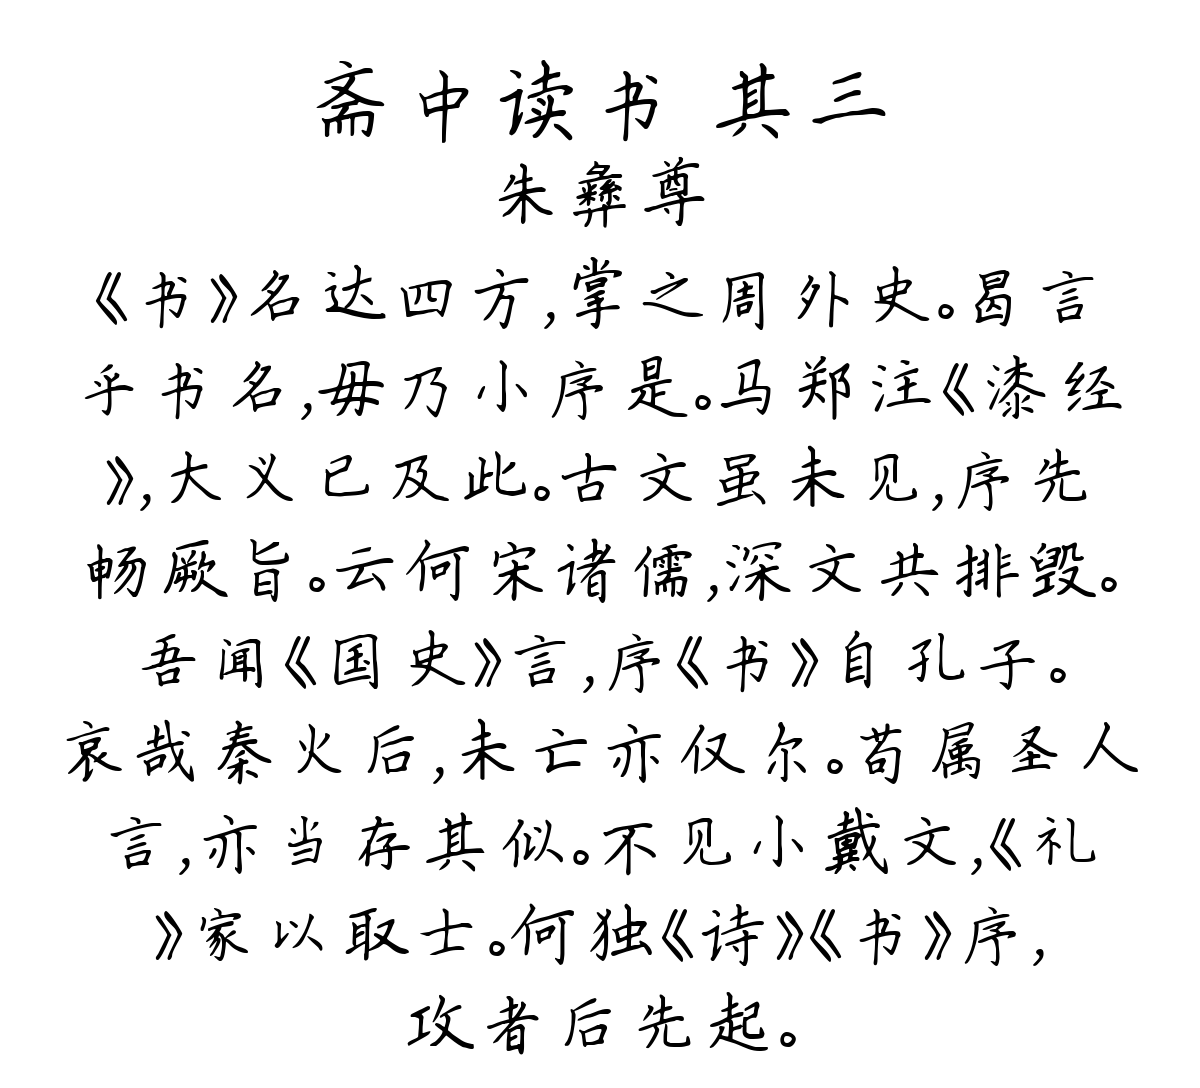 斋中读书 其三
朱彝尊
《书》名达四方,掌之周外史。曷言
乎书名,毋乃小序是。马郑注《漆经
》,大义已及此。古文虽未见,序先
畅厥旨。云何宋诸儒,深文共排毁。
吾闻《国史》言,序《书》自孔子。
哀哉秦火后,未亡亦仅尔。苟属圣人
言,亦当存其似。不见小戴文,《礼
》家以取士。何独《诗》《书》序,
攻者后先起。